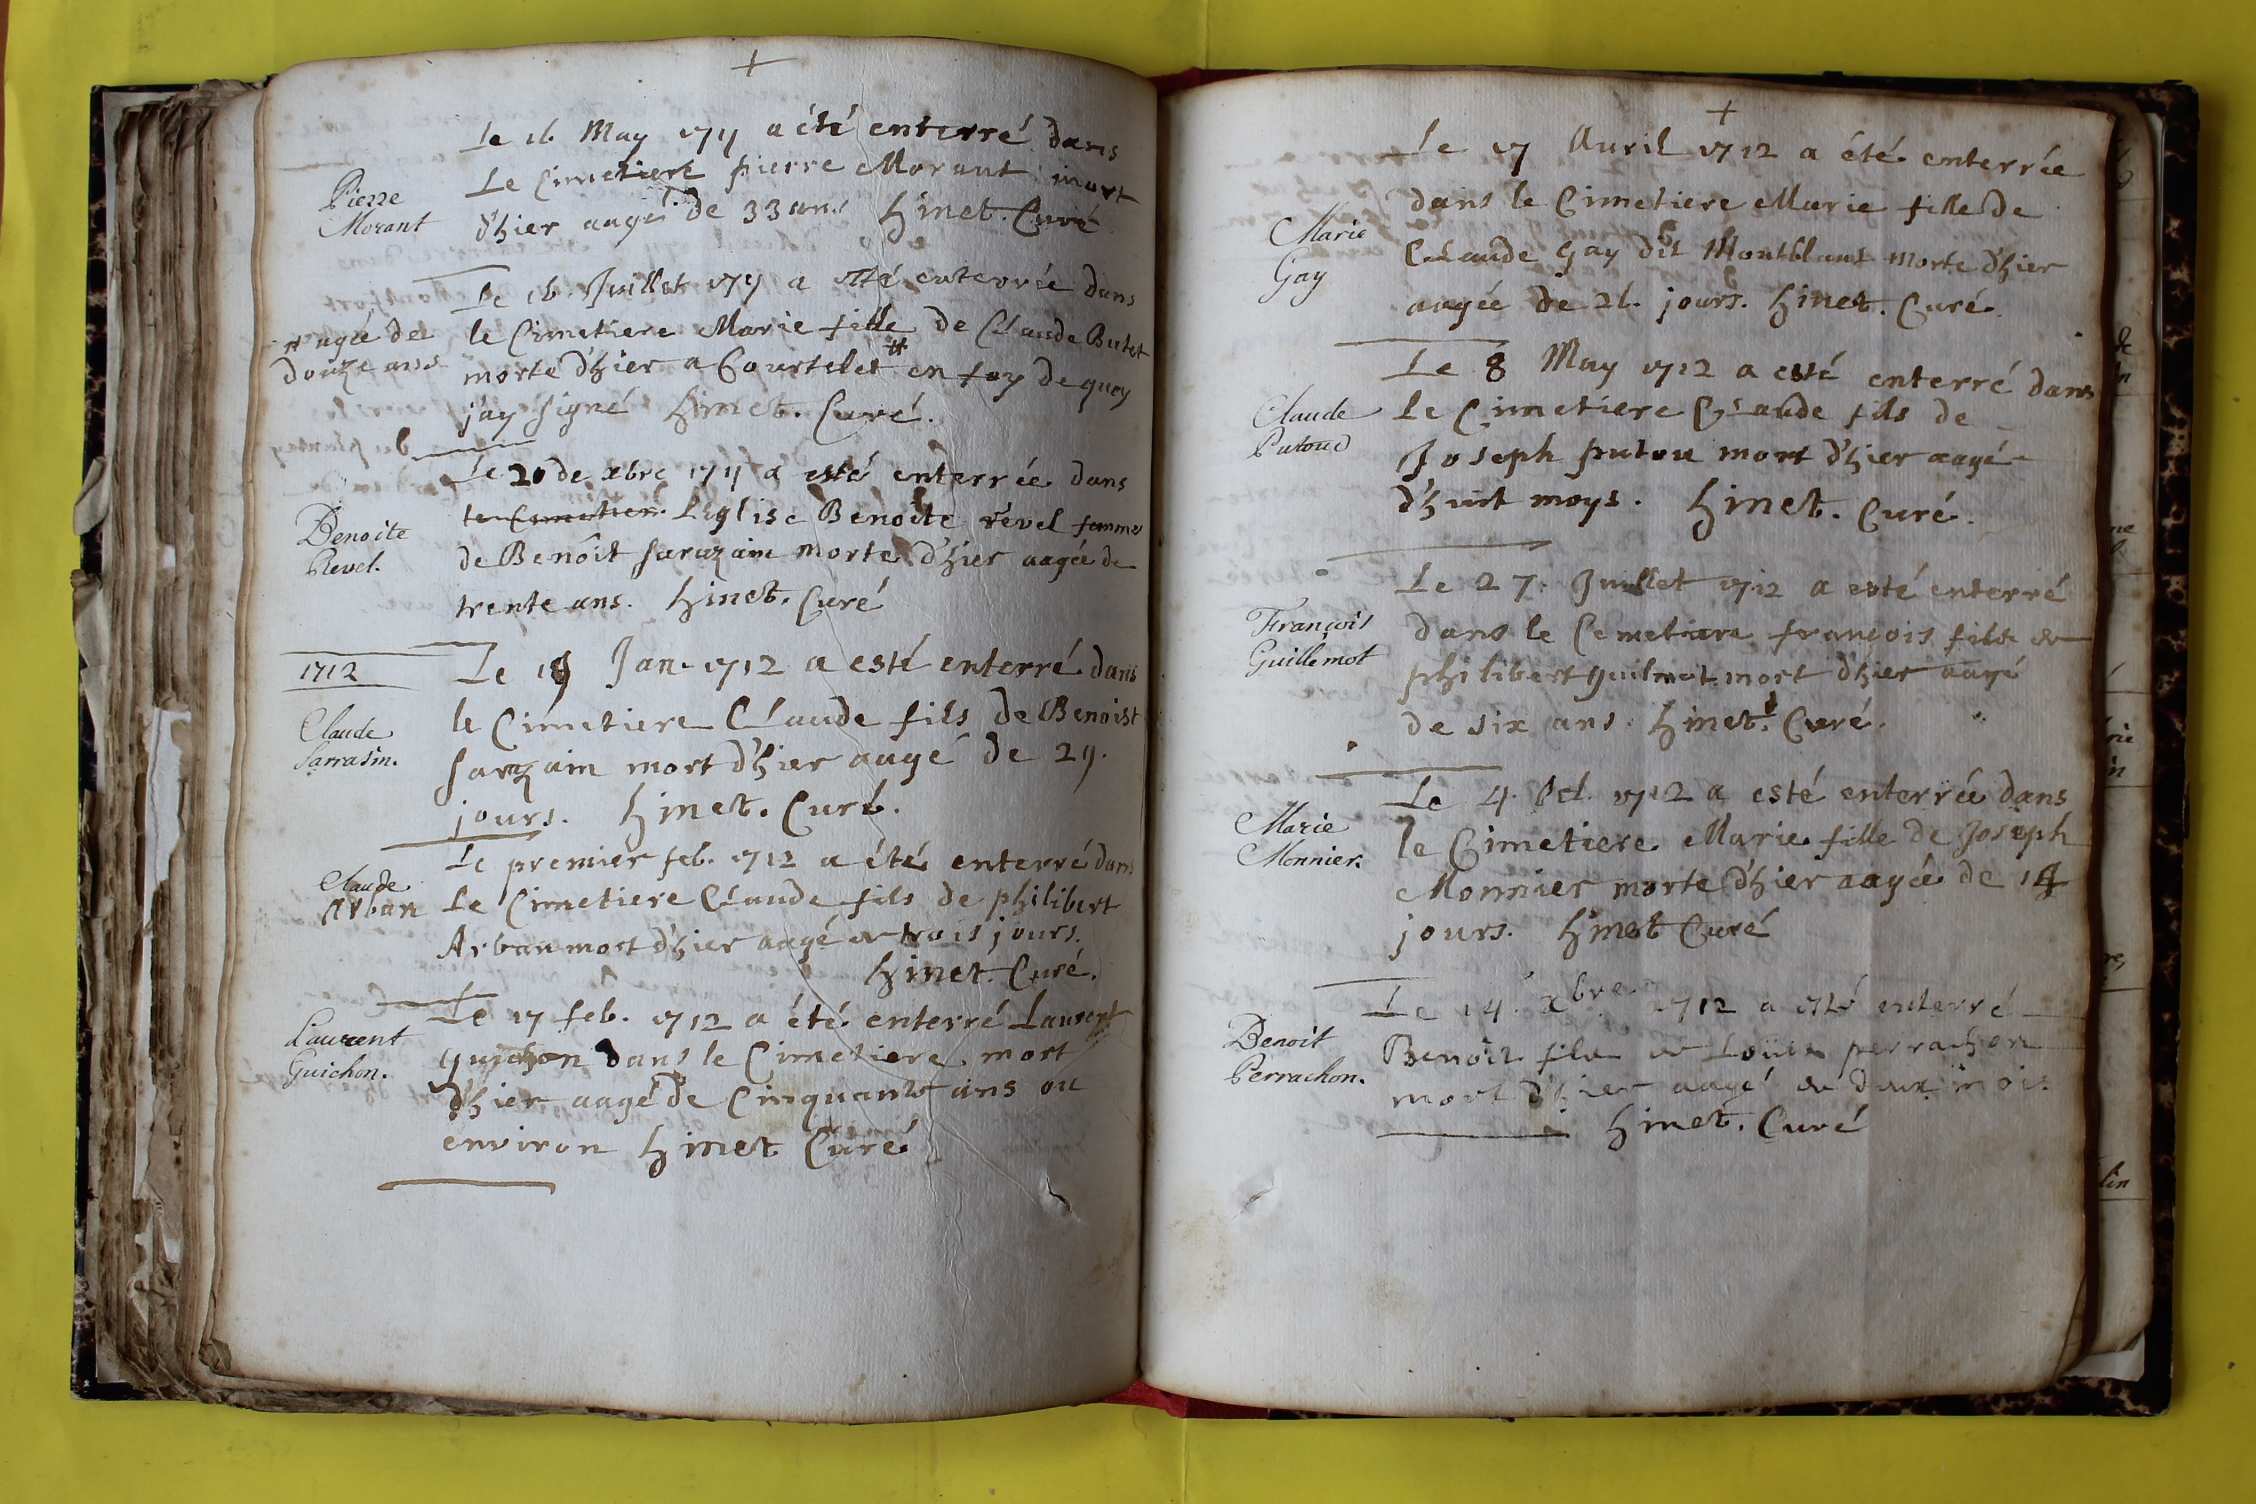 +
Le 16 May 1711 a été enterré dans
Le Cimetiere pierre Morant mort
d'hier aagé de 33 ans hinet. Curé
Pierre
Morant
Le 16 Juillet 1711 a été enterrée dans
le Cimetiere Marie fille de Claude Butet
morte d'hier a Courtelet # en foy de quoy
j'ay signé hinet. Curé.
# agée de
douze ans
Le 20 de xbre 1711 a esté enterrée dans
le Cimetiere L'Eglise Benoite revel femme
de Benoît sarazain morte d'hier aagée de
trente ans. hinet. Curé
Benoite
Revel.
1712
Le 19 Jan. 1712 a esté enterré dans
le Cimetiere Claude fils de Benoist
sarazain mort d'hier aagé de 29.
jours. hinet. Curé.
Claude
Sarrasin.
Le premier feb. 1712 a été enterré dans
Le Cimetiere Claude fils de philibert
Arban mort d'hier aagé de trois jours.
hinet. Curé.
Claude
Arban
Le 17 feb. 1712 a été enterré Laurent
guichon dans le Cimetiere mort
d'hier aagé de Cinquante ans ou
environ hinet Curé
Laurent
Guichon.
+
Le 17 Avril 1712 a été enterrée
dans le Cimetiere Marie fille de
Claude Gay dit Montblant morte d'hier
aagée de 26. jours. hinet. Curé.
Marie
Gay
Le 8 May 1712 a esté enterré dans
Le Cimetiere Claude fils de
Joseph putou mort d'hier aagé
d'huit moys. hinet. Curé.
Claude
Putoud
Le 27. Juillet 1712 a esté enterré
dans le Cemetiere françois fils de
philibert guilmot mort d'hier aagé
de six ans. hinet. Curé.
François
Guillemot
Le 4. Oct. 1712 a esté enterrée dans
le Cimetiere Marie fille de Joseph
Monnier morte d'hier aagée de 14
jours. hinet Curé
Marie
Monnier.
Le 14. xbre 1712 a esté enterré
Benoît fils de Louis perrachon
mort d'hier aagé de deux mois
hinet. Curé
Benoit
Perrachon.